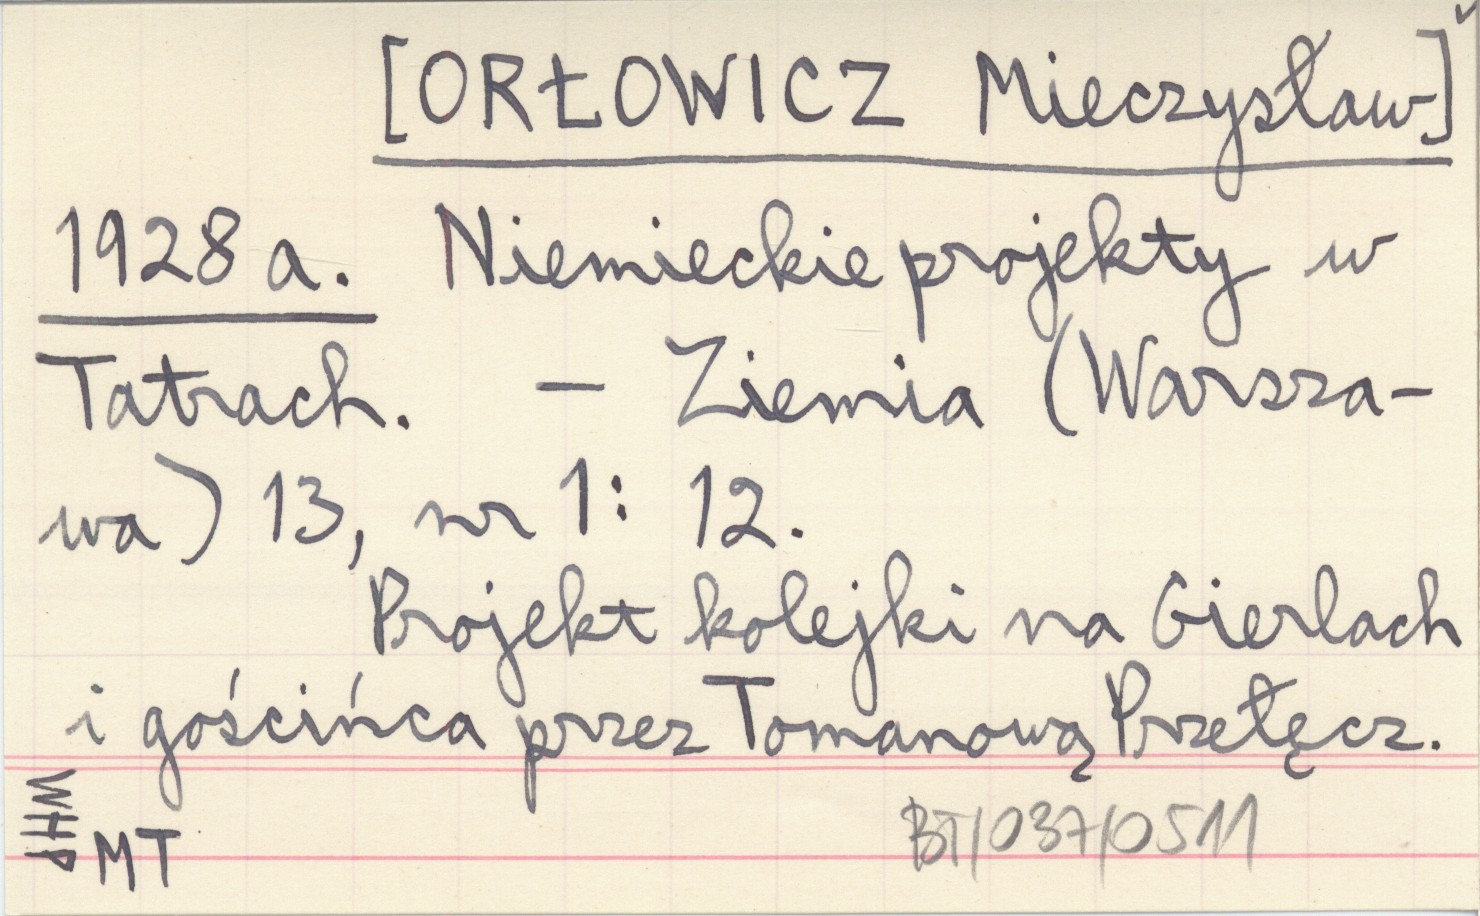 [ORŁOWICZ Mieczysław]
1928 a. Niemieckie projekty w
Tatrach. — Ziemia (Warsza-
wa) 13, nr 1: 12.
Projekt kolejki na Gierlach
i gościńca przez Tomanową Przełęcz.
WHP
MT
BT/037/0511